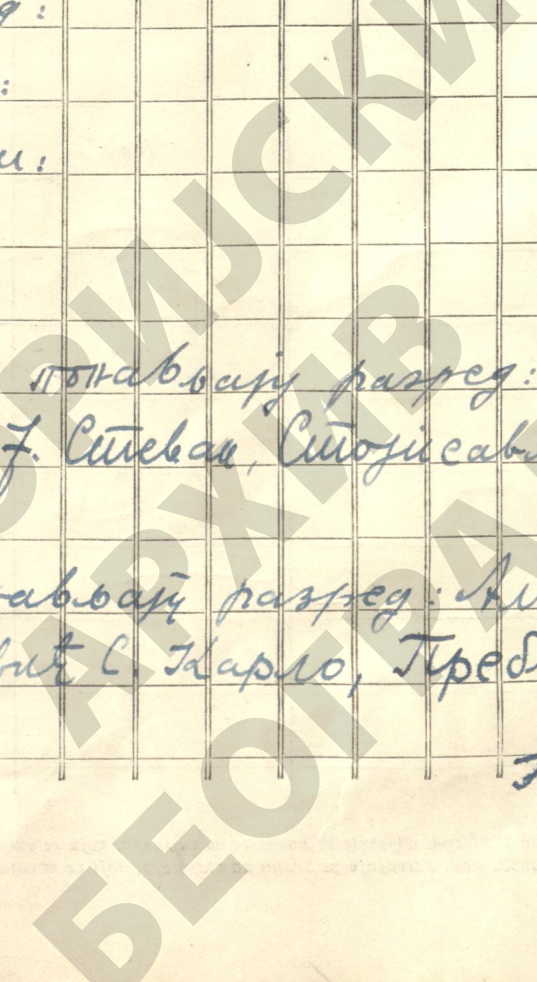 д:
:
и:
понављају разред:
Ј. Стеван, Стојисав
ављају разред: Ал
вић С. Карло, Преб
ОРИЈСКИ
АРХИВ
БЕОГРА